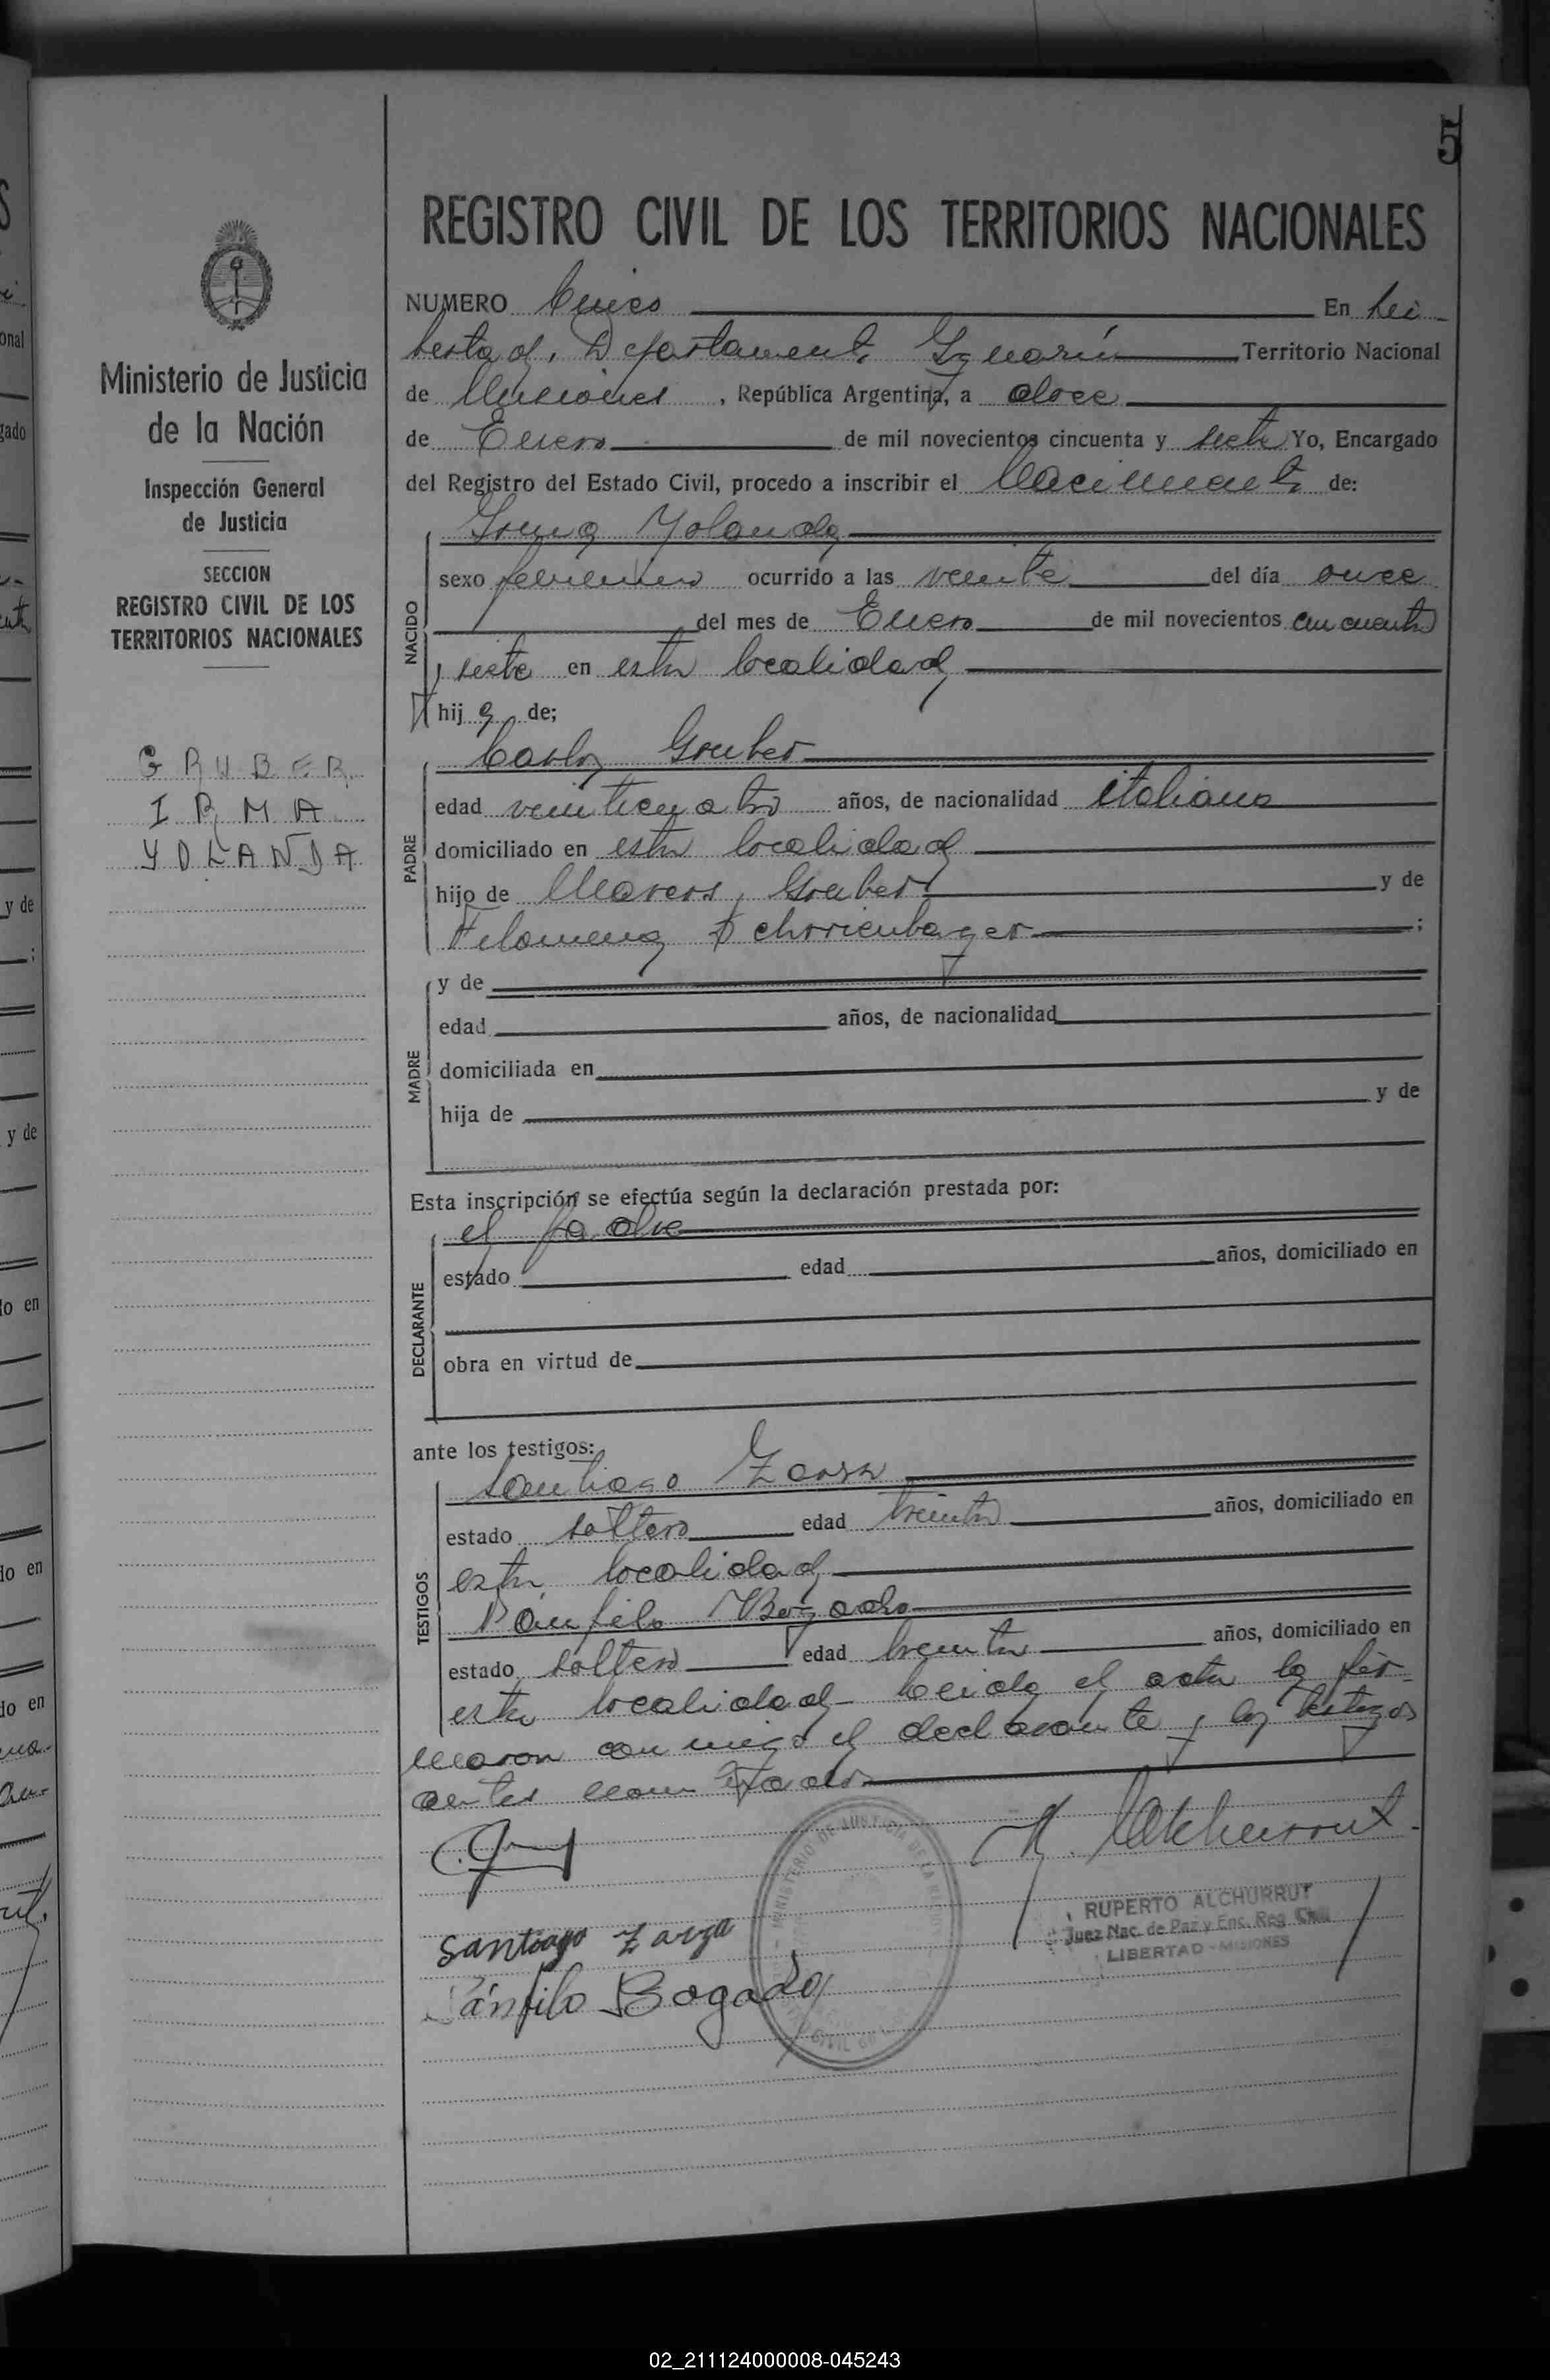 5
REGISTRO CIVIL DE LOS TERRITORIOS NACIONALES
Ministerio de Justicia
de la Nación
Inspección General
de Justicia
SECCION
REGISTRO CIVIL DE LOS
TERRITORIOS NACIONALES
GRUBER
IRMA
YOLANDA
NUMERO Cinco En Li-
bertad, Departamento Iguazú Territorio Nacional
de Misiones, República Argentina, a doce
de Enero de mil novecientos cincuenta y siete Yo, Encargado
del Registro del Estado Civil, procedo a inscribir el Nacimiento de:
NACIDO
Irma Yolanda
sexo femenino ocurrido a las veinte del día once
del mes de Enero de mil novecientos cincuenta
y siete en esta localidad
hij a de;
PADRE
Carlos Gruber
edad veinticuatro años, de nacionalidad italiano
domiciliado en esta localidad
hijo de Marcos Gruber y de
Filomena ;
MADRE
y de
edad años, de nacionalidad
domiciliada en
hija de y de
Esta inscripción se efectúa según la declaración prestada por:
DECLARANTE
el padre
estado edad años, domiciliado en
obra en virtud de
ante los testigos:
TESTIGOS
Santiago Zarza
estado soltero edad treinta años, domiciliado en
esta localidad
Pánfilo Bogado
estado soltero edad treinta años, domiciliado en
esta localidad - Leida el acta la fir-
maron conmigo el declarante y los testigos
antes nombrados
R. Alchurrut
RUPERTO ALCHURRUT
Juez Nac. de Paz y Enc. Reg. Civil
LIBERTAD - MISIONES
Santiago Zarza
Pánfilo Bogado
MINISTERIO DE JUSTICIA DE LA NACION
02_211124000008-045243